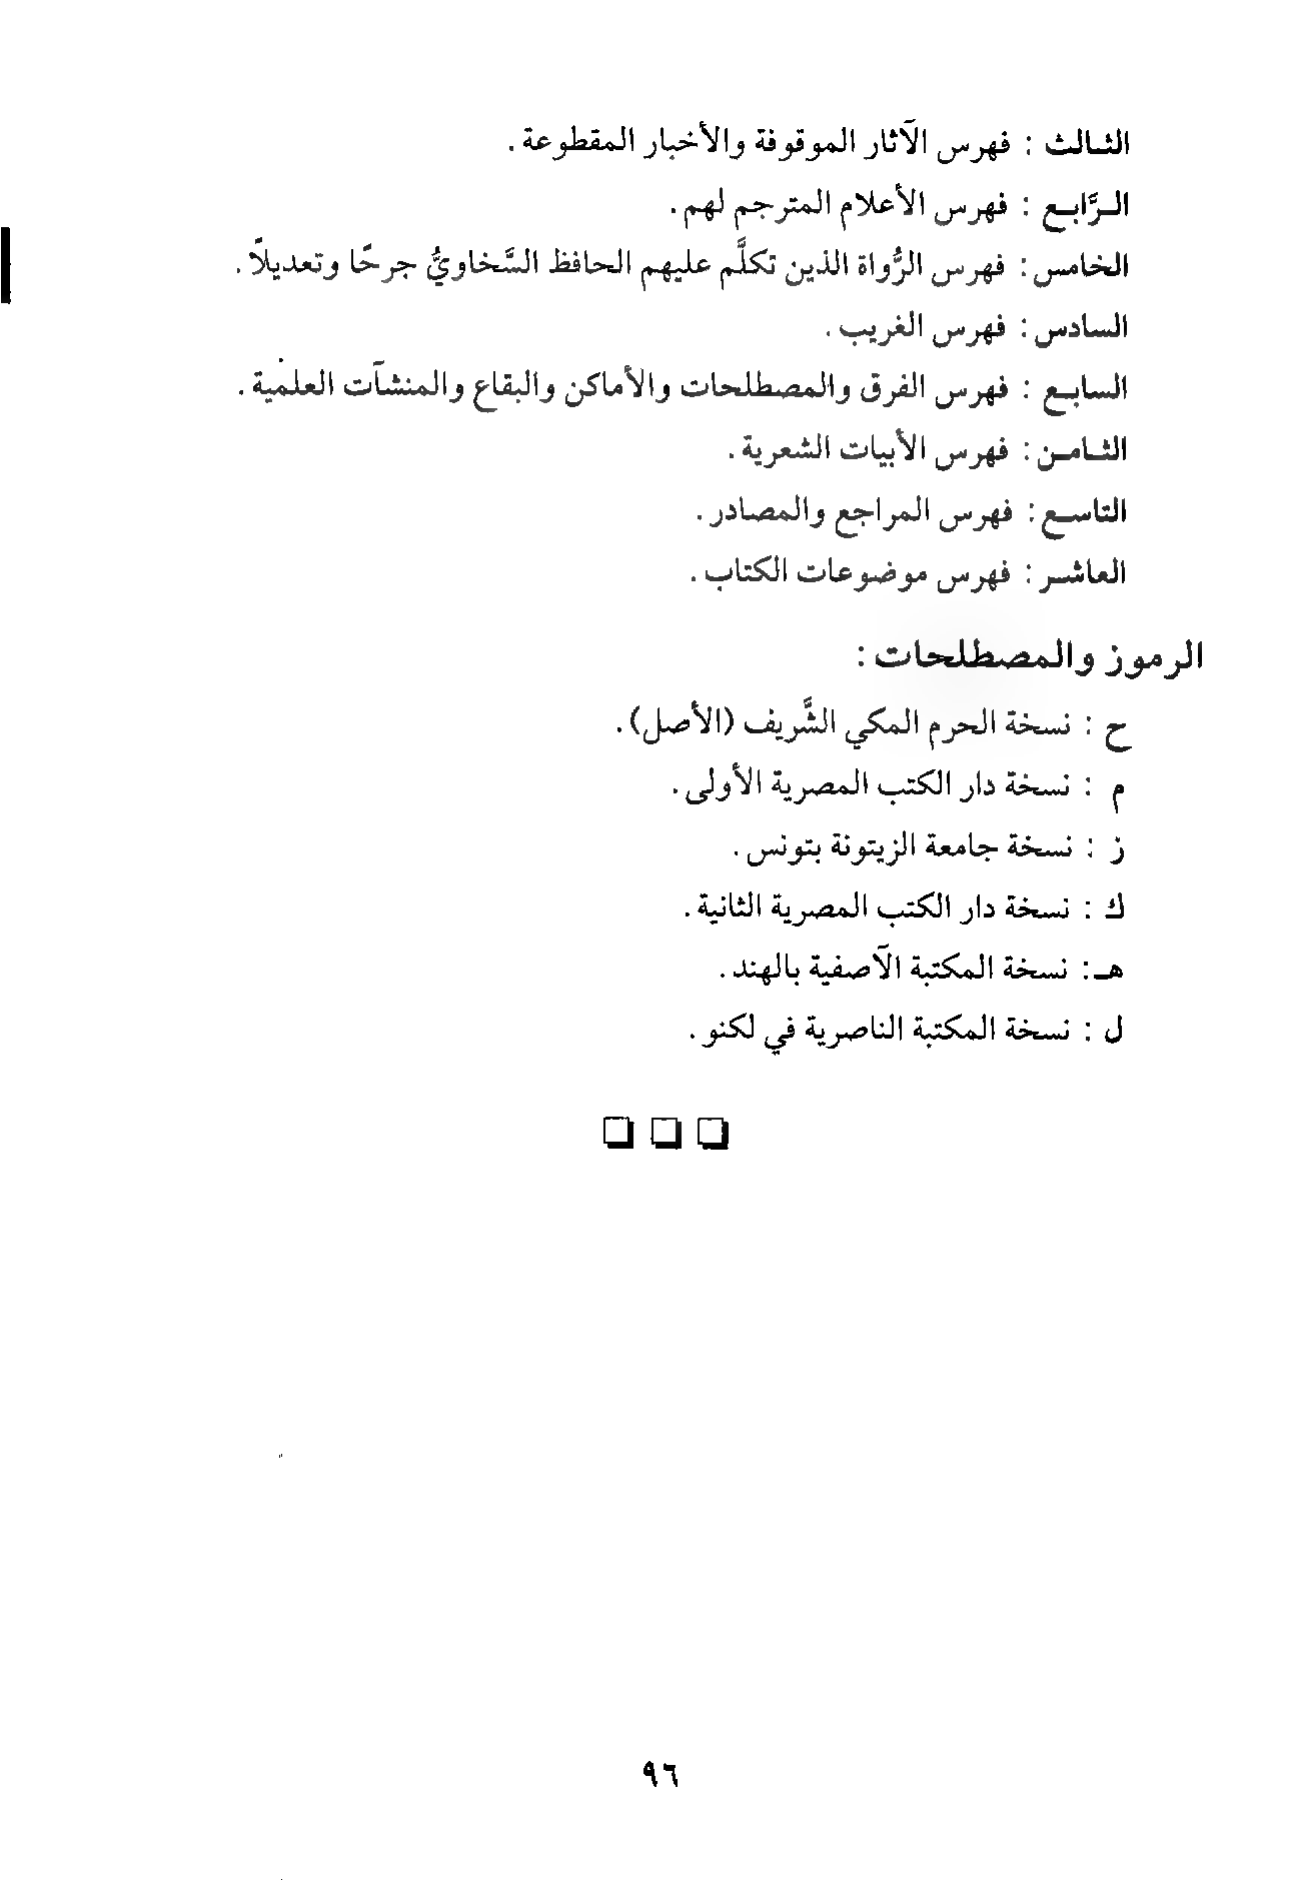 الثالث : فهرس الآثار الموقوفة والأخبار المقطوعة .
الرَّابع : فهرس الأعلام المترجم لهم .
الخامس : فهرس الرُّواة الذين تكلَّم عليهم الحافظ السَّخاويُّ جرحًا وتعديلاً .
السادس : فهرس الغريب .
السابع : فهرس الفرق والمصطلحات والأماكن والبقاع والمنشآت العلمية .
الثامن : فهرس الأبيات الشعرية .
التاسع : فهرس المراجع والمصادر .
العاشر : فهرس موضوعات الكتاب .
الرموز والمصطلحات :
ح : نسخة الحرم المكي الشَّريف (الأصل) .
م : نسخة دار الكتب المصرية الأولى .
ز : نسخة جامعة الزيتونة بتونس .
ك : نسخة دار الكتب المصرية الثانية .
هـ : نسخة المكتبة الآصفية بالهند .
ل : نسخة المكتبة الناصرية في لكنو .
٩٦